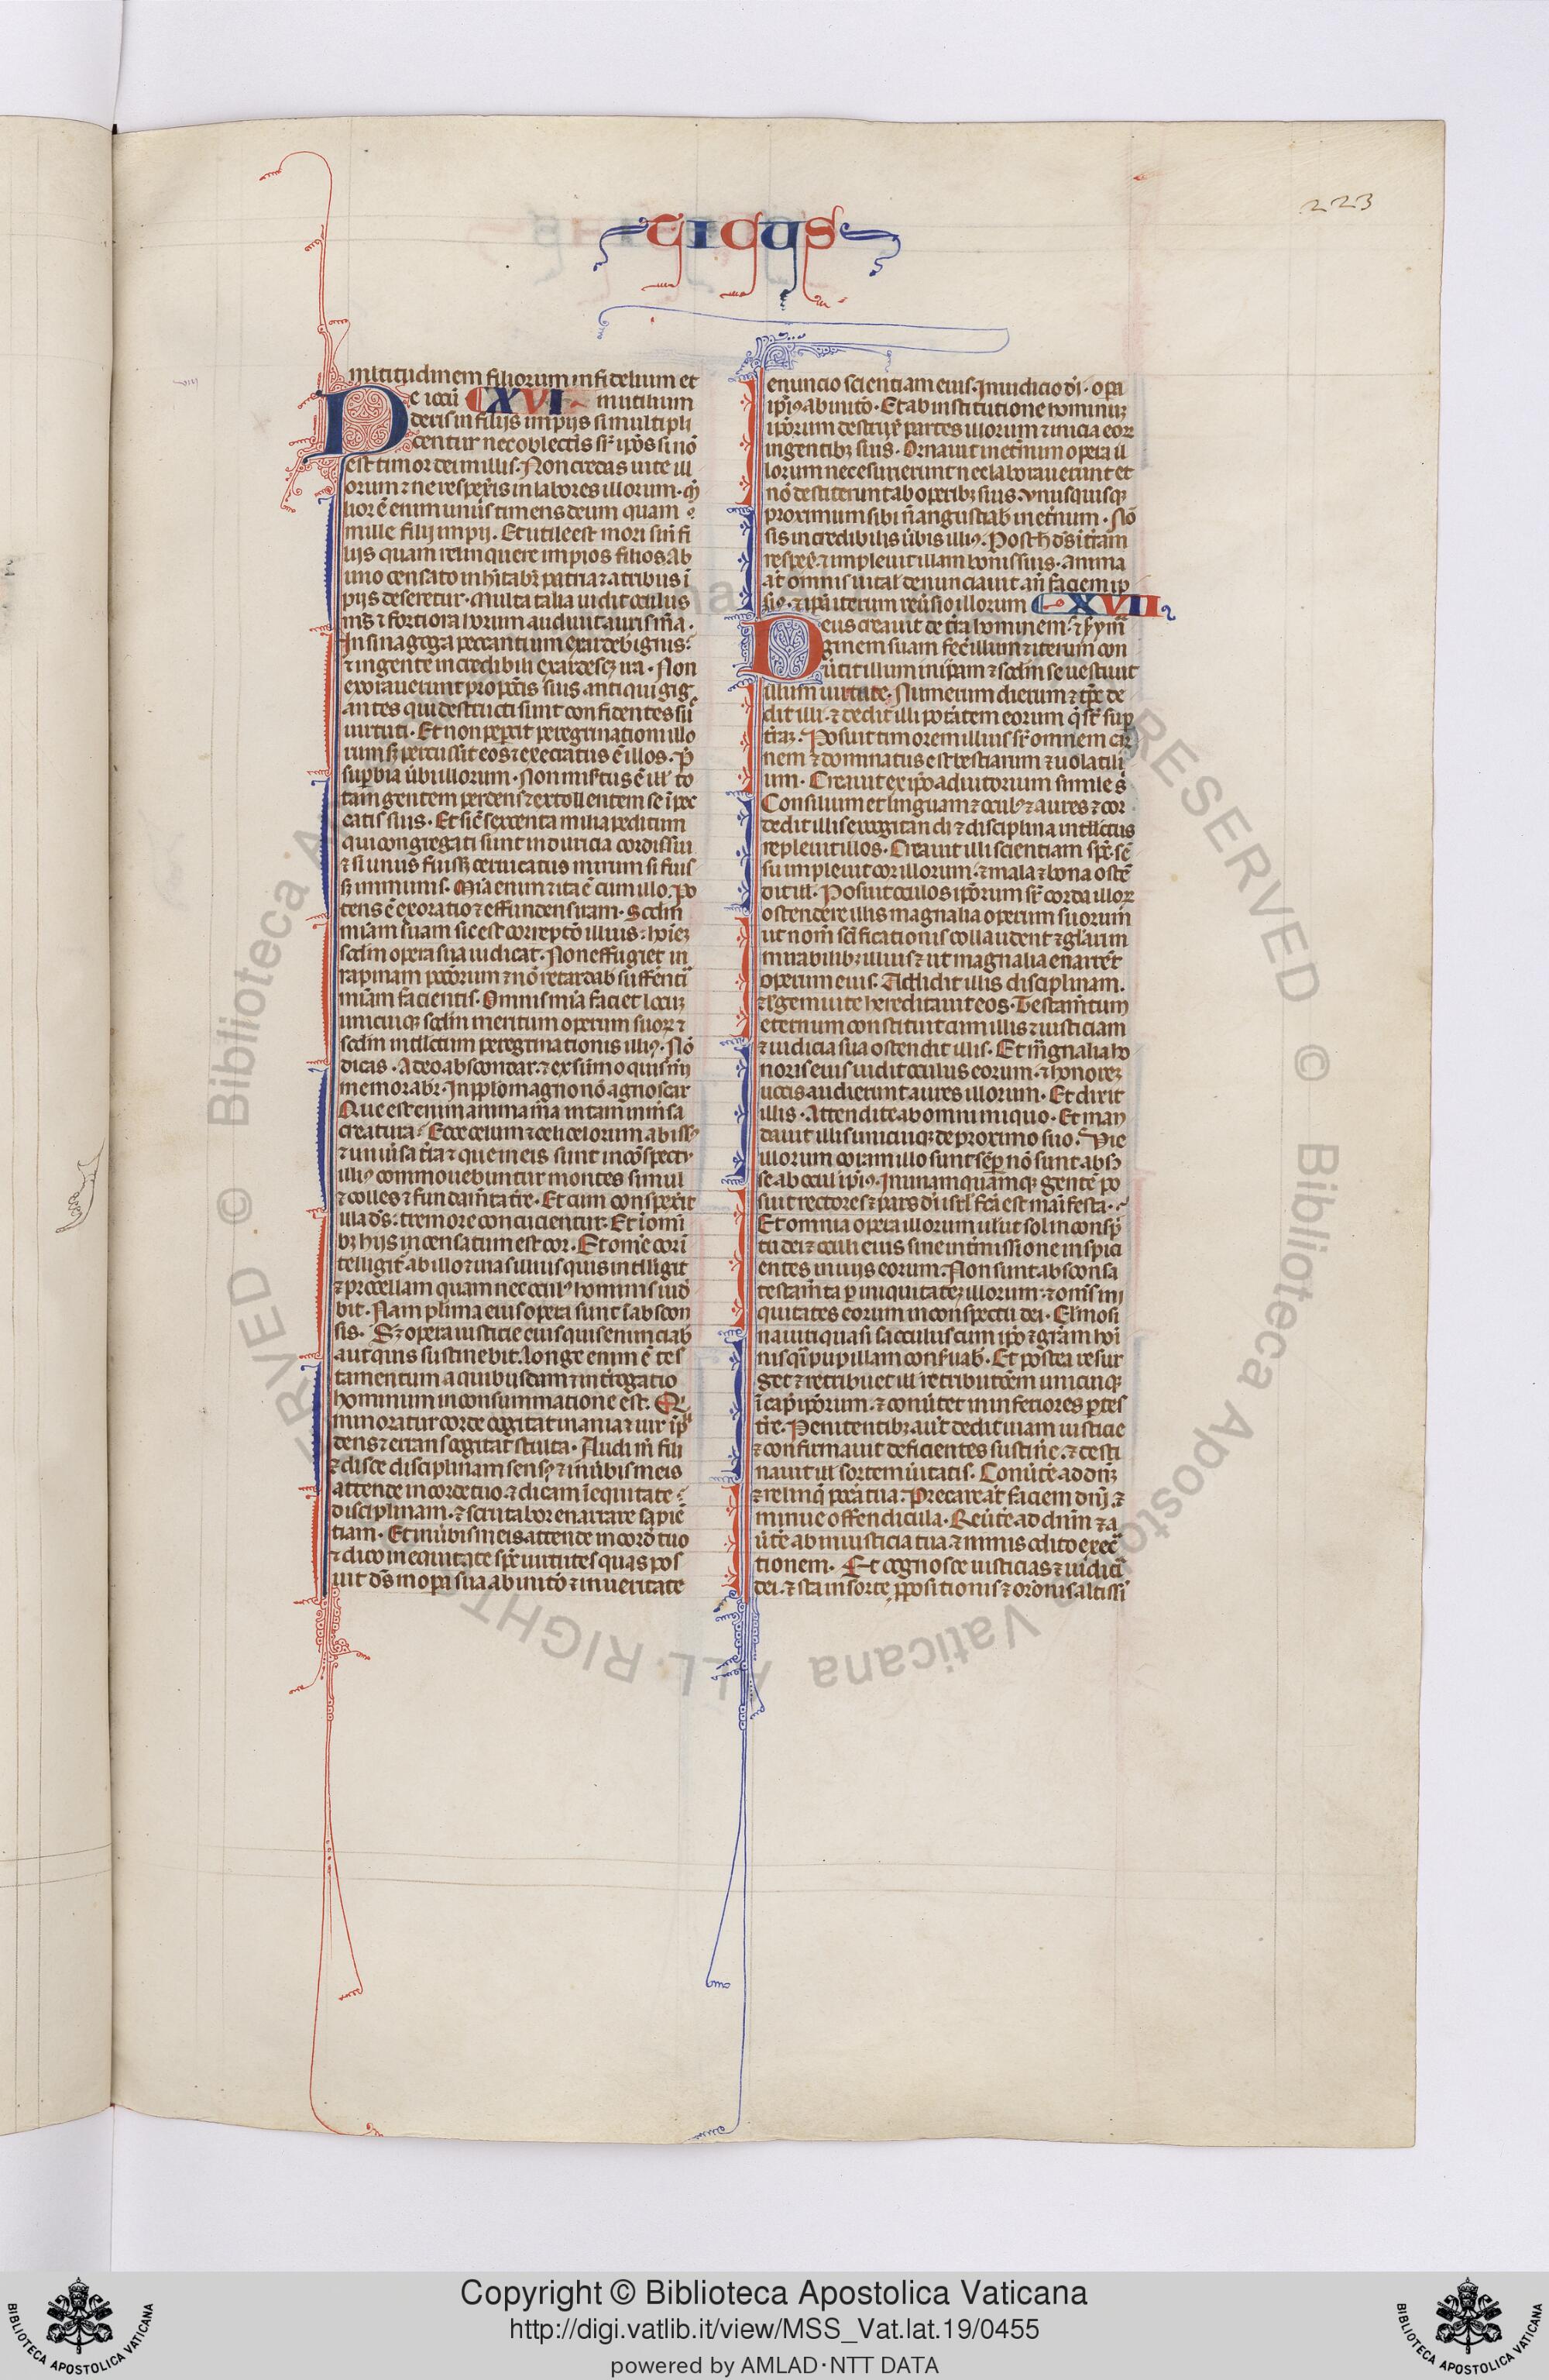 223
TICUS
multitudinem filiorum infidelium et
Ne iocũ CXVI inutilium
deris in filijs impijs si multipli
centur nec oblectẽis sr̃ ip̃os si nõ
est timor dei in illis. Non credas uite ill
orum ⁊ ne respex̃is in labores illorum. 
lior ẽ enim unus timens deum quam
mille filij impij. Et utile est mori sin̄ fi
lijs quam relinquere impios filios. Ab
uno censato inh̃itabr̃ patria ⁊ a tribus ĩ
pijs deseretur. Multa talia uidit oculus
ms̃ ⁊ fortiora horum audiuit auris m̃a.
In sinagoga peccantium exardebit ignis
⁊ in gente incredibili exardescz ira. Non
exorauerunt pro pcc̃is suis antiqui gig
antes qui destructi sunt confidentes su᷒
uirtuti. Et non pepercit peregrinationi illo
rum sz̃ percussit eos ⁊ execratus ẽ illos. p̃
sup̃bia ũbi illorum. Non mis̃tus ẽ ill᷒ to
tam gentem perdens ⁊ extollentem se ĩ pec
catis suis. Et sic̃ sexcenta milia peditum
qui congregati sunt in duricia cordis sui
⁊ si unus fuissz ceruicatus mirum si fuis
sz immunis. Mia enim ⁊ ira ẽ cum illo. Po
tens ẽ exoratio ⁊ effundens iram. Scdm̃
miam suam sic est correptõ illius. hoiez
scdm̃ opera sua iudicat. Non effugiet in
rapinam pcc̃orum ⁊ nõ retardab᷒ suffenci᷒
miam facientis. Omnis mia faciet locuz
unicuiqz scdm̃ meritum operum suorz ⁊
scdm̃ intllectum peregrinationis illi᷒. Nõ
dicas. A deo abscondar. ⁊ ex sum̃o quis m̃
memorabr̃. In pplo magno nõ agnoscar
Que est enim anima m̃a in tam inm̃sa
creatura. Ecce celum ⁊ celi celorum abiss᷒
⁊ uniũsa t̃ra ⁊ que in eis sunt in cõspectu
illi᷒ commouebuntur montes simul
⁊ colles ⁊ fundam̃ta tr̃e. Et cum conspex̃it
illa ds̃. tremore concucientur. Et ĩ omi
bz hijs incensatum est cor. Et om̃e cor ĩ
telligit᷒ ab illo ⁊ uias illius quis intlligit
⁊ procellam quam nec ocul᷒ hominis uid̃
bit. Nam plima eius opera sunt ĩ abscon
sis. Sz opera iusticie eius quis enunciab᷒
aut quis sustinebit. longe enim ẽ tes
tamentum a quibusdam ⁊ int̃rogatio
hominum in consummatione est. Q᷒
minoratur corde cogitat inania ⁊ uir ĩp᷒
dens ⁊ errans cogitat stulta. Audi m̃ fili
⁊ disce disciplinam sens᷒ ⁊ in ũbis meis
attende in corde tuo. ⁊ dicam ĩ equitate
disciplinam. ⁊ scrutabor enarrare sapiẽ
tiam. Et in ũbis meis attende in cord̃ tuo
⁊ dico in equitate sp̃c uirtutes quas pos
uit ds̃ in opa sua ab initõ ⁊ in ueritate
enuncio scientiam eius. In iudicio di᷒. opa
ip̃i᷒ ab initõ. Et ab institutione hominuz
ip̃orum destrux̃ partes illorum ⁊ inicia eorz
in gentibz suis. Ornauit in et̃num opera il
lorum nec esurierunt nec laborauerunt et
nõ destiterunt ab operibz suis. Vnusquisqz
proximum sibi ñ angustiab᷒ in et̃num. Nõ
sis incredibilis ũbis illi᷒. Post h̃ ds̃ ĩ t̃ram
respex̃. ⁊ impleuit illam bonis suis. Anima
at̃ omnis uital᷒ denunciauit an̄ faciem ip
si᷒. ⁊ ip̃a iterum reũsio illorum CXVII
Deus creauit de t̃ra hominem. ⁊ s᷒ ym᷒
ginem suam fec̃ illum ⁊ iterum con
ũtit illum in ip̃am ⁊ scdm̃ se uestiuit
illum uirtute. Numerum dierum ⁊ tp̃s de
dit illi. ⁊ dedit illi potatem eorum q̃ st̃ sup
t̃raz. Posuit timorem illius sr̃ omnem car
nem ⁊ dominatus est bestiarum ⁊ uolatili
um. Creauit ex ip̃o adiutorium simile s᷒
Consilium et linguam ⁊ ocul᷒ ⁊ aures ⁊ cor
dedit illis excogitandi ⁊ disciplina intllectus
repleuit illos. Creauit illi scientiam sp̃s. sẽ
su impleuit cor illorum. ⁊ mala ⁊ bona ostẽ
dit ill᷒. Posuit oculos ip̃orum sr̃ corda illorz
ostendere illis magnalia operum suorum
ut nom̃ sc̃ificationis collaudent ⁊ gl̃ari in
mirabilibz illius ⁊ ut magnalia enarrẽt
operum eius. Addidit illis disciplinam.
⁊ lgem uite hereditauit eos. Testam̃tum
eternum constituit cum illis ⁊ iusticiam
⁊ iudicia sua ostendit illis. Et magnalia ho
noris eius uidit oculus eorum. ⁊ honorez
uocis audierunt aures illorum. Et dixit
illis. Attendite ab omni iniquo. Et man
dauit illis unicuiqz de proximo suo. Vie
illorum coram illo sunt sẽp nõ sunt abs᷒
se ab ocul᷒ ip̃i᷒. In unamquamqz gentẽ p̃o
suit rectorẽ ⁊ pars di᷒ isrl᷒ fc̃a est manifesta.
Et omnia opera illorum uelut sol in consp᷒
tu dei ⁊ oculi eius sine int̃missione inspici
entes in uijs eorum. Non sunt absconsa
testam̃ta p iniquitatez illorum. ⁊ om̃s ini
quitates eorum in conspectu dei. Elimosi
na uiri quasi sacculus cum ip̃o ⁊ gr̃am hoi᷒
nis quasi pupillam conseruab᷒. Et postea resur
get ⁊ retribuet ill᷒ retributõem unicuiqz
ĩ capi᷒ ip̃orum. ⁊ conũtet in inferiores p̃tes
t̃re. Penitentibz aut dedit uiam iusticie
⁊ confirmauit deficientes sustin̄e. ⁊ desti
nauit ill᷒ sortem ũitatis. Conũte ad dnz̃
⁊ relinq̃ pcc̃a tua. Precare at̃ faciem dn̄i. ⁊
minue offendicula. Reũte ad dnm̃ ⁊ a
ũte ab iniusticia tua. ⁊ nimis odito execr᷒
tionem. Et cognosce iusticias ⁊ iudici᷒
dei. ⁊ sta in sorte ppositionis ⁊ orõnis altissi᷒
Copyright © Biblioteca Apostolica Vaticana
http://digi.vatlib.it/view/MSS_Vat.lat.19/0455
powered by AMLAD·NTT DATA
BIBLIOTECA APOSTOLICA VATICANA
BIBLIOTECA APOSTOLICA VATICANA